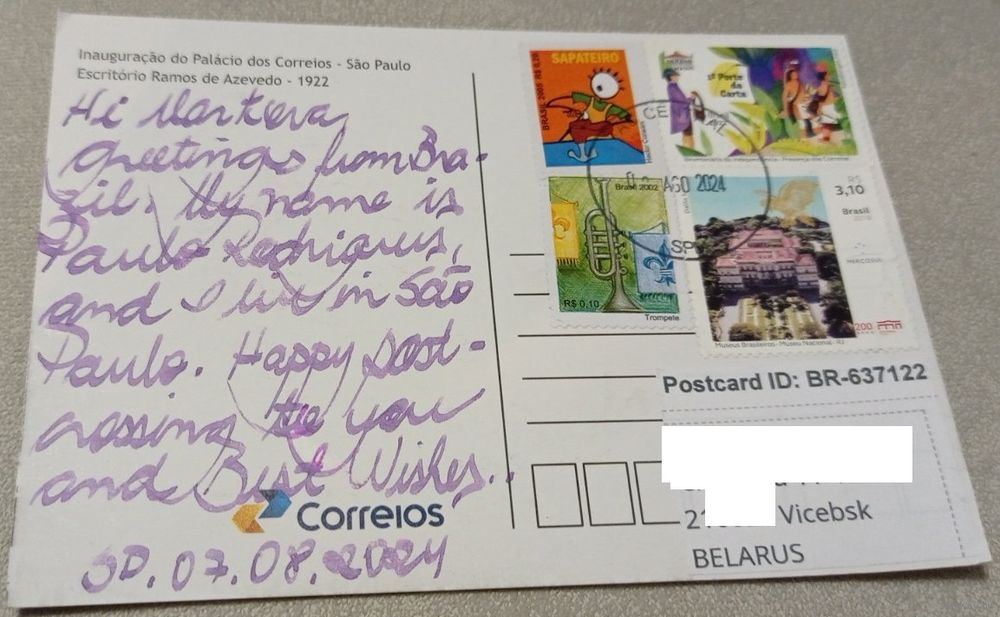 Inauguração do Palácio dos Correios - São Paulo
Escritório Ramos de Azevedo - 1922
Hi
Greetings from Bra-
zil. My name is
Paulo Rodrigues,
and I live in São
Paulo. Happy post-
crossing to you
and Best Wishes..
Correios
SP. 07.08.2024
SAPATEIRO
BRASIL 2005 R$ 0,20
1º Porte
da
Carta
CENTRAL
AGO 2024
SP
Brasil 2002
R$ 0,10
Trompete
R$
3,10
Brasil
MERCOSUL
200
Museus Brasileiros - Museu Nacional - RJ
Postcard ID: BR-637122
Vicebsk
BELARUS